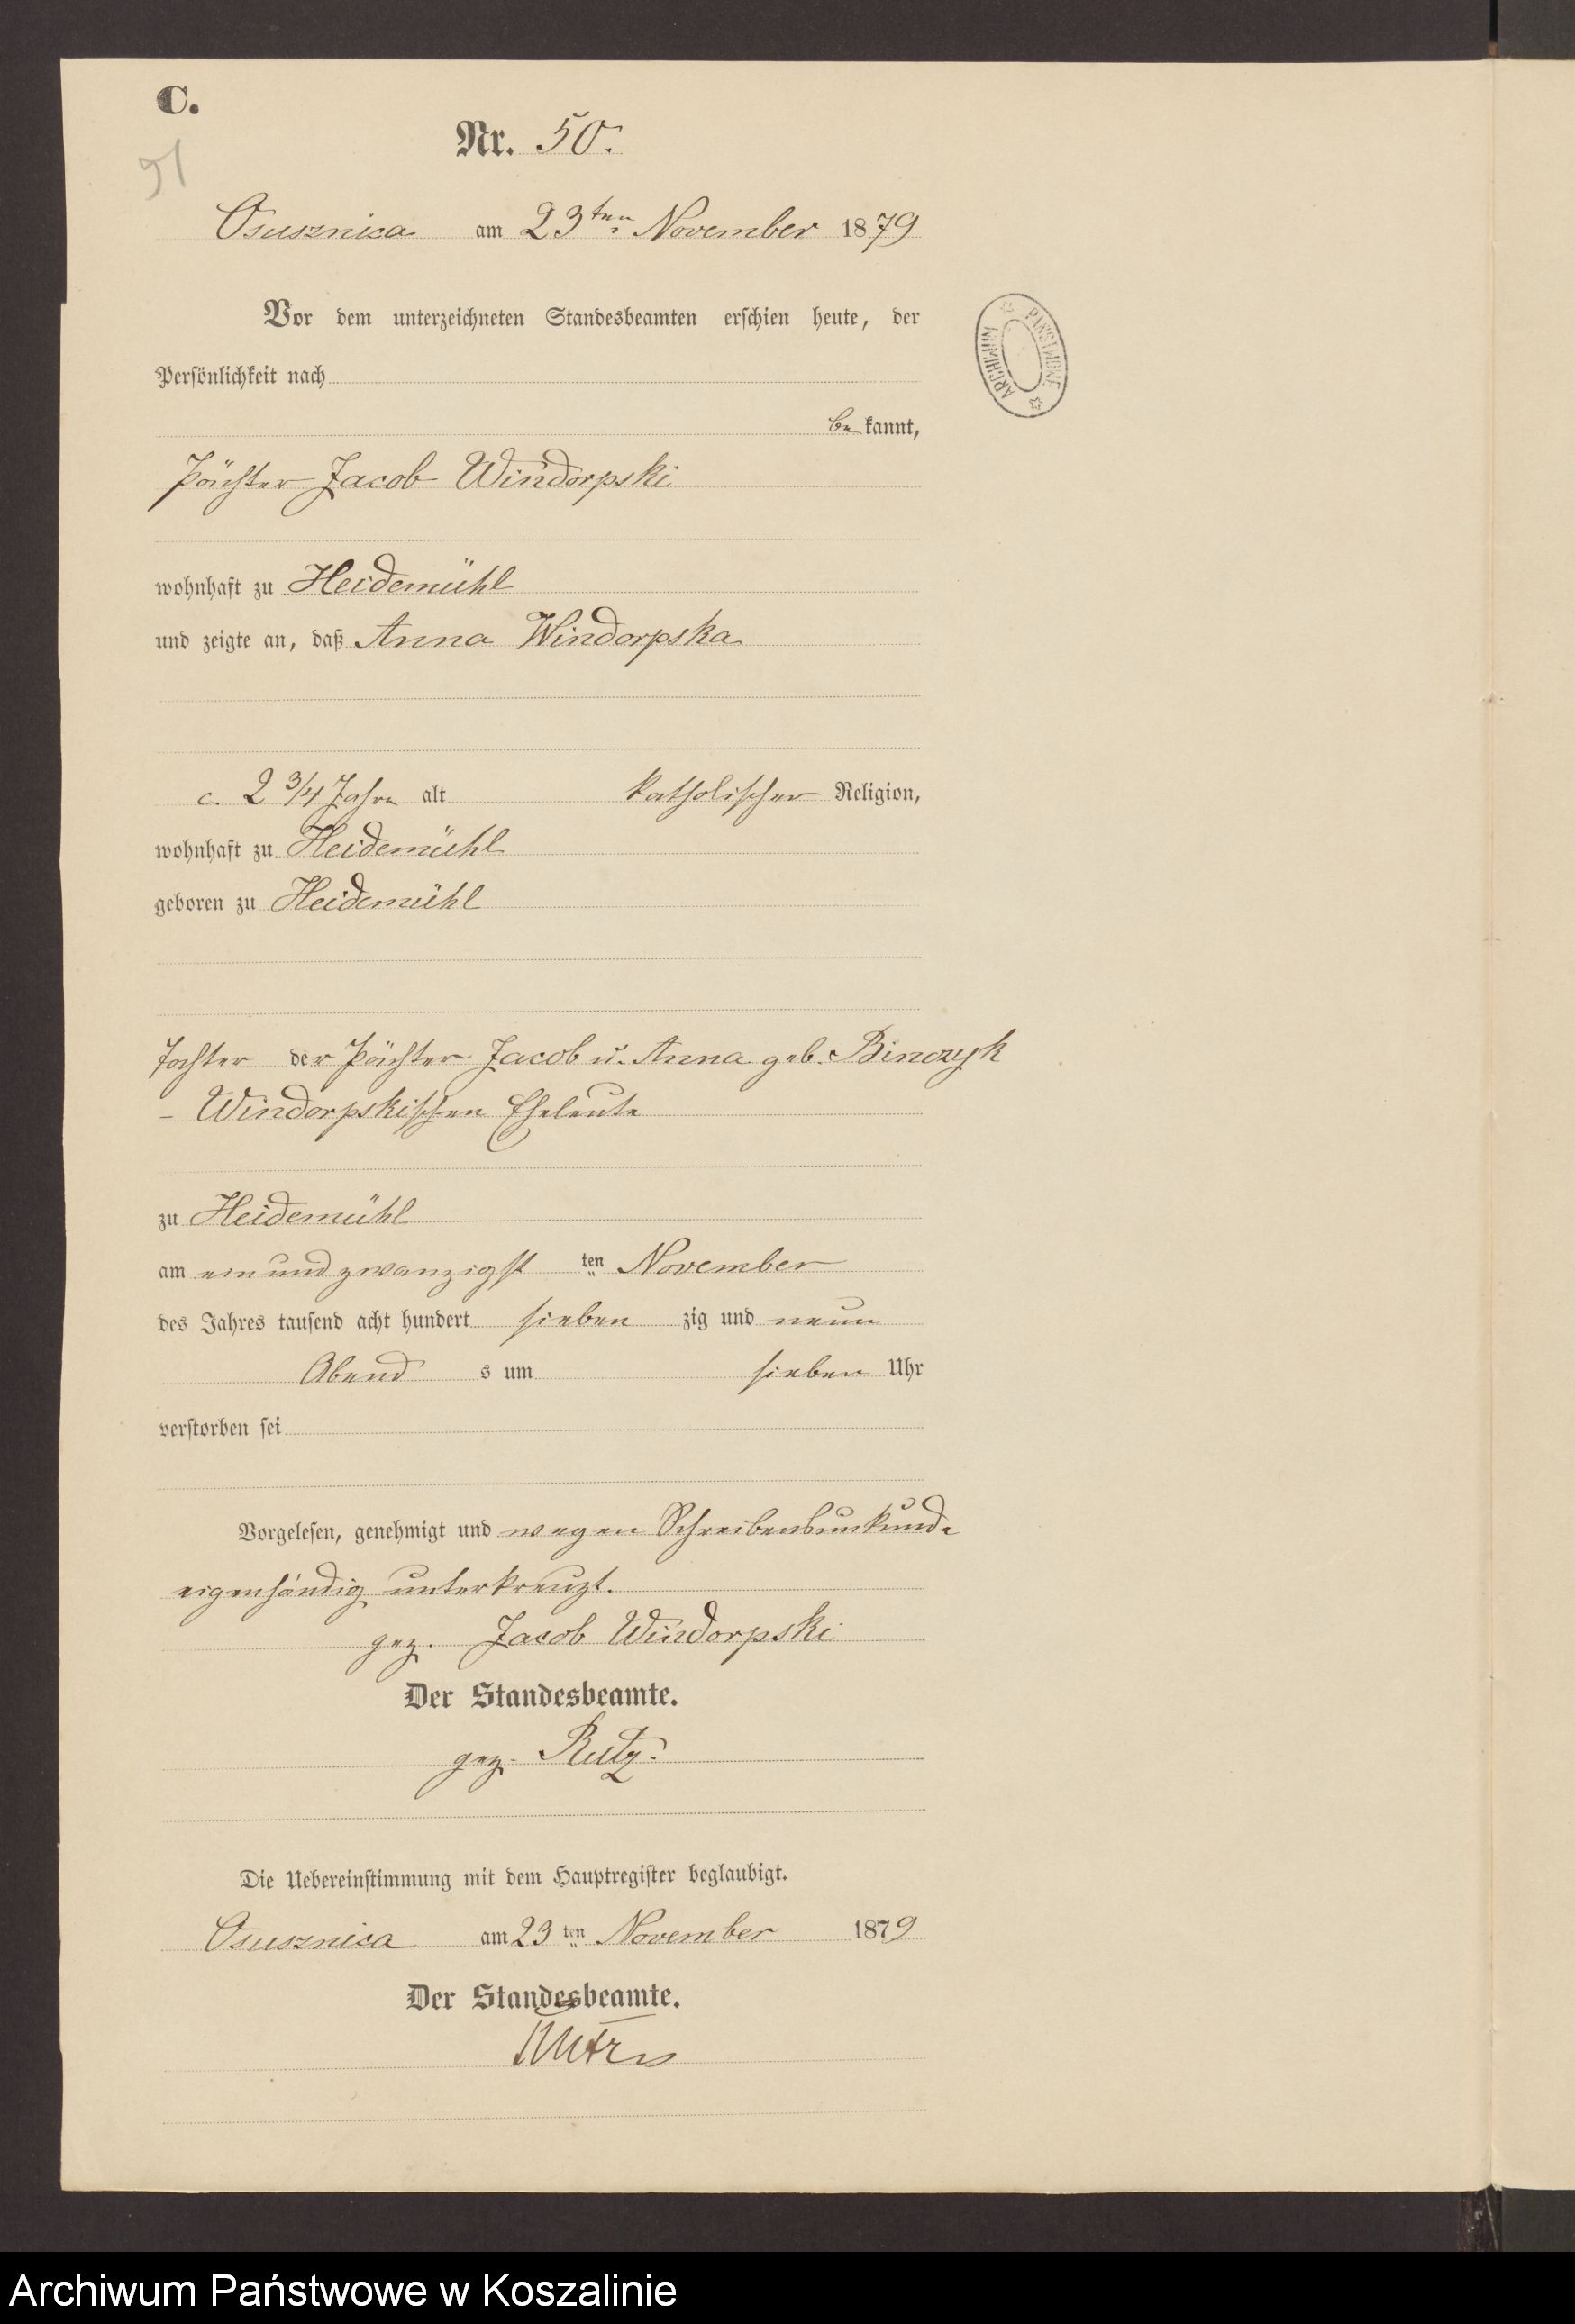 C.
Nr. 50.
91
Osusznica am 23ten November 1879
Vor dem unterzeichneten Standesbeamten erschien heute, der
Persönlichkeit nach
be kannt,
Pächter Jacob Windorpski
wohnhaft zu Heidemühl
und zeigte an, daß Anna Windorpska
c. 2 3/4 Jahre alt katholischer Religion,
wohnhaft zu Heidemühl
geboren zu Heidemühl
Tochter der Pächter Jacob u. Anna geb. Binczyk
- Windorpskischen Eheleute
zu Heidemühl
am ein und zwanzigst ten November
des Jahres tausend acht hundert sieben zig und neun
Abend s um sieben Uhr
verstorben sei
Vorgelesen, genehmigt und wegen Schreibensunkunde
eigenhändig unterkreuzt.
gez. Jacob Windorpski
Der Standesbeamte.
gez. Rutz.
Die Uebereinstimmung mit dem Hauptregister beglaubigt.
Osusznica am 23 ten November 1879
Der Standesbeamte.
ARCHIWUM PAŃSTWOWE
Archiwum Państwowe w Koszalinie